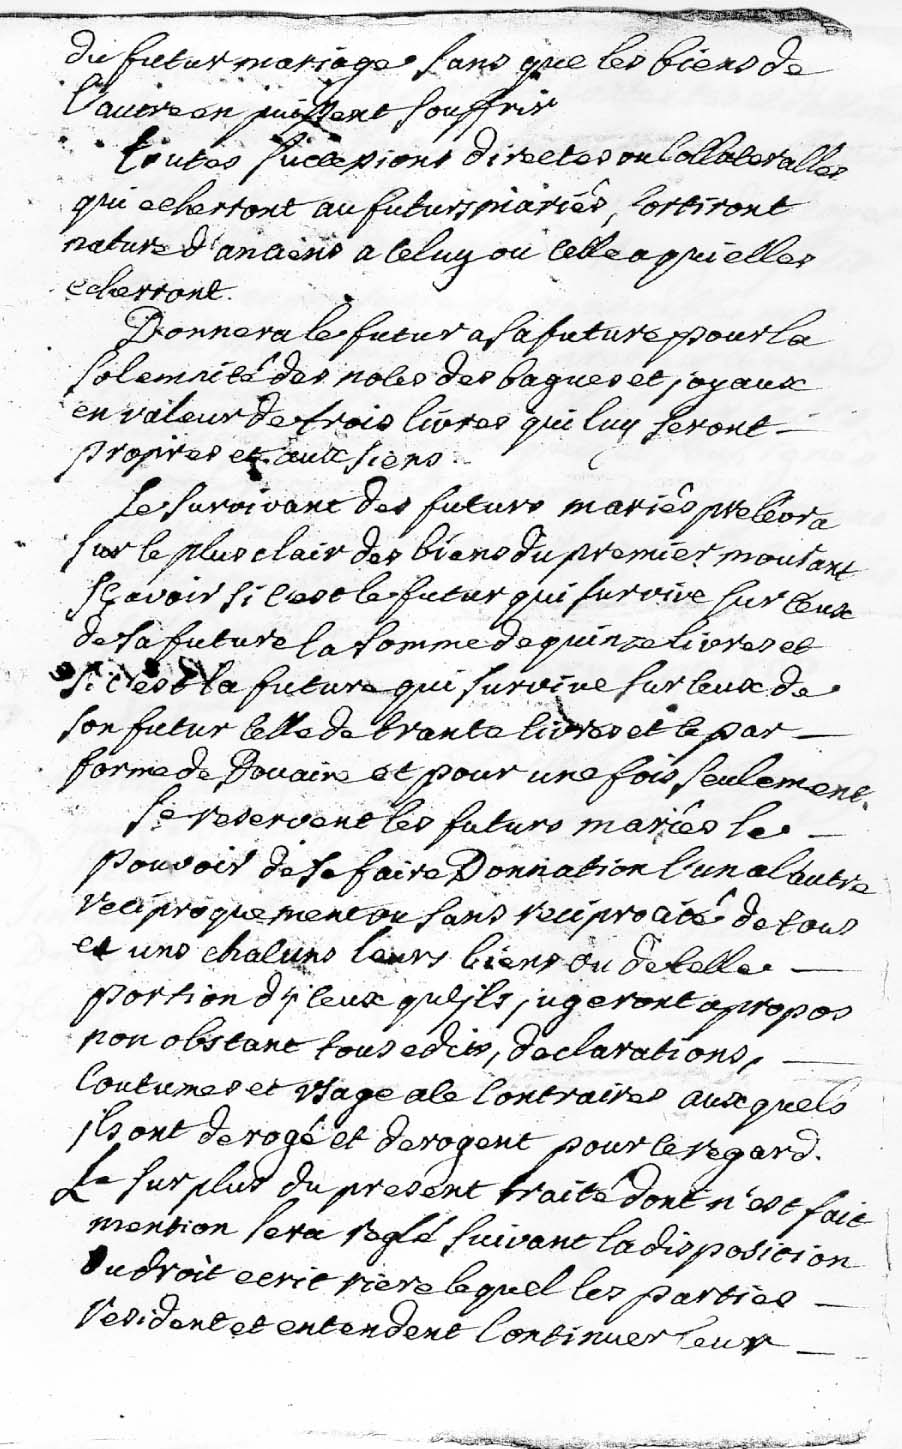 du futur mariage sans que les biens de
l'autre en puissent souffrir
toutes successions directes ou Collateralles
qui echerront au futurs mariés, sortiront
nature d'anciens a celuy ou celle a qui elles
echerront.
Donnera le futur a sa future pour la
solemnité des noces des bagues et joyaux
en valeur de trois livres qui luy seront
propres et aux siens.
Le survivant des futurs mariés prelevra
sur le plus clair des biens du premier mourant
sçavoir si c'est le futur qui survive sur ceux
de sa future la somme de quinze livres et
si c'est la future qui survive sur ceux de
son futur celle de trante livres et ce par
forme de Douaire et pour une fois seulement.
se reservent les futurs mariés le
pouvoir de se faire Donnation l'un a l'autre
reciproquement ou sans reciprocité de tous
et uns chacuns leurs biens ou de telle
portion d'jceux qu'jls jugeront apropos
non obstant tous edits, declarations,
Coutumes et usage a ce contraires aux quels
jls ont derogé et derogent pour ce regard.
Le surplus du present traité dont n'est fait
mention sera reglé suivant la disposition
du droit ecrit riere lequel les parties
resident et entendent continuer leur